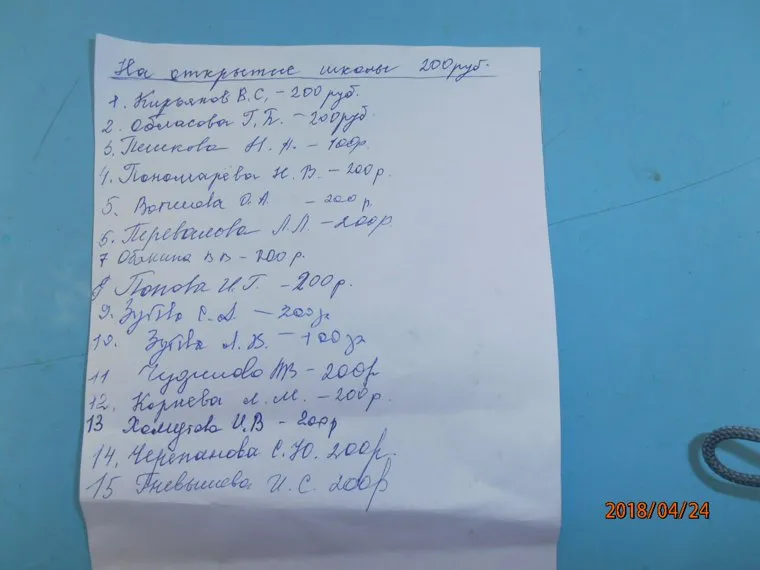 На открытие школы 200руб.
1. Кирьянов В.С. - 200руб.
2. Обласова Г.Б. - 200руб.
3. Пешкова Н.Н. - 100р.
4. Пономарёва Н.В. - 200р.
5. О.А. - 200р.
6. Перевалова Л.Л. - 200р
7 В В - 200р.
8 Попова И.Г. - 200р.
9. Зуева С.А. - 200
10. Зуева А.В. - 100
11 - 200р
12. Корнева Л.М. - 200р.
13 Хомутова И.В - 200р
14. Черепанова С.Ю. 200р.
15 Гневышева И.С. 200р
2018/04/24